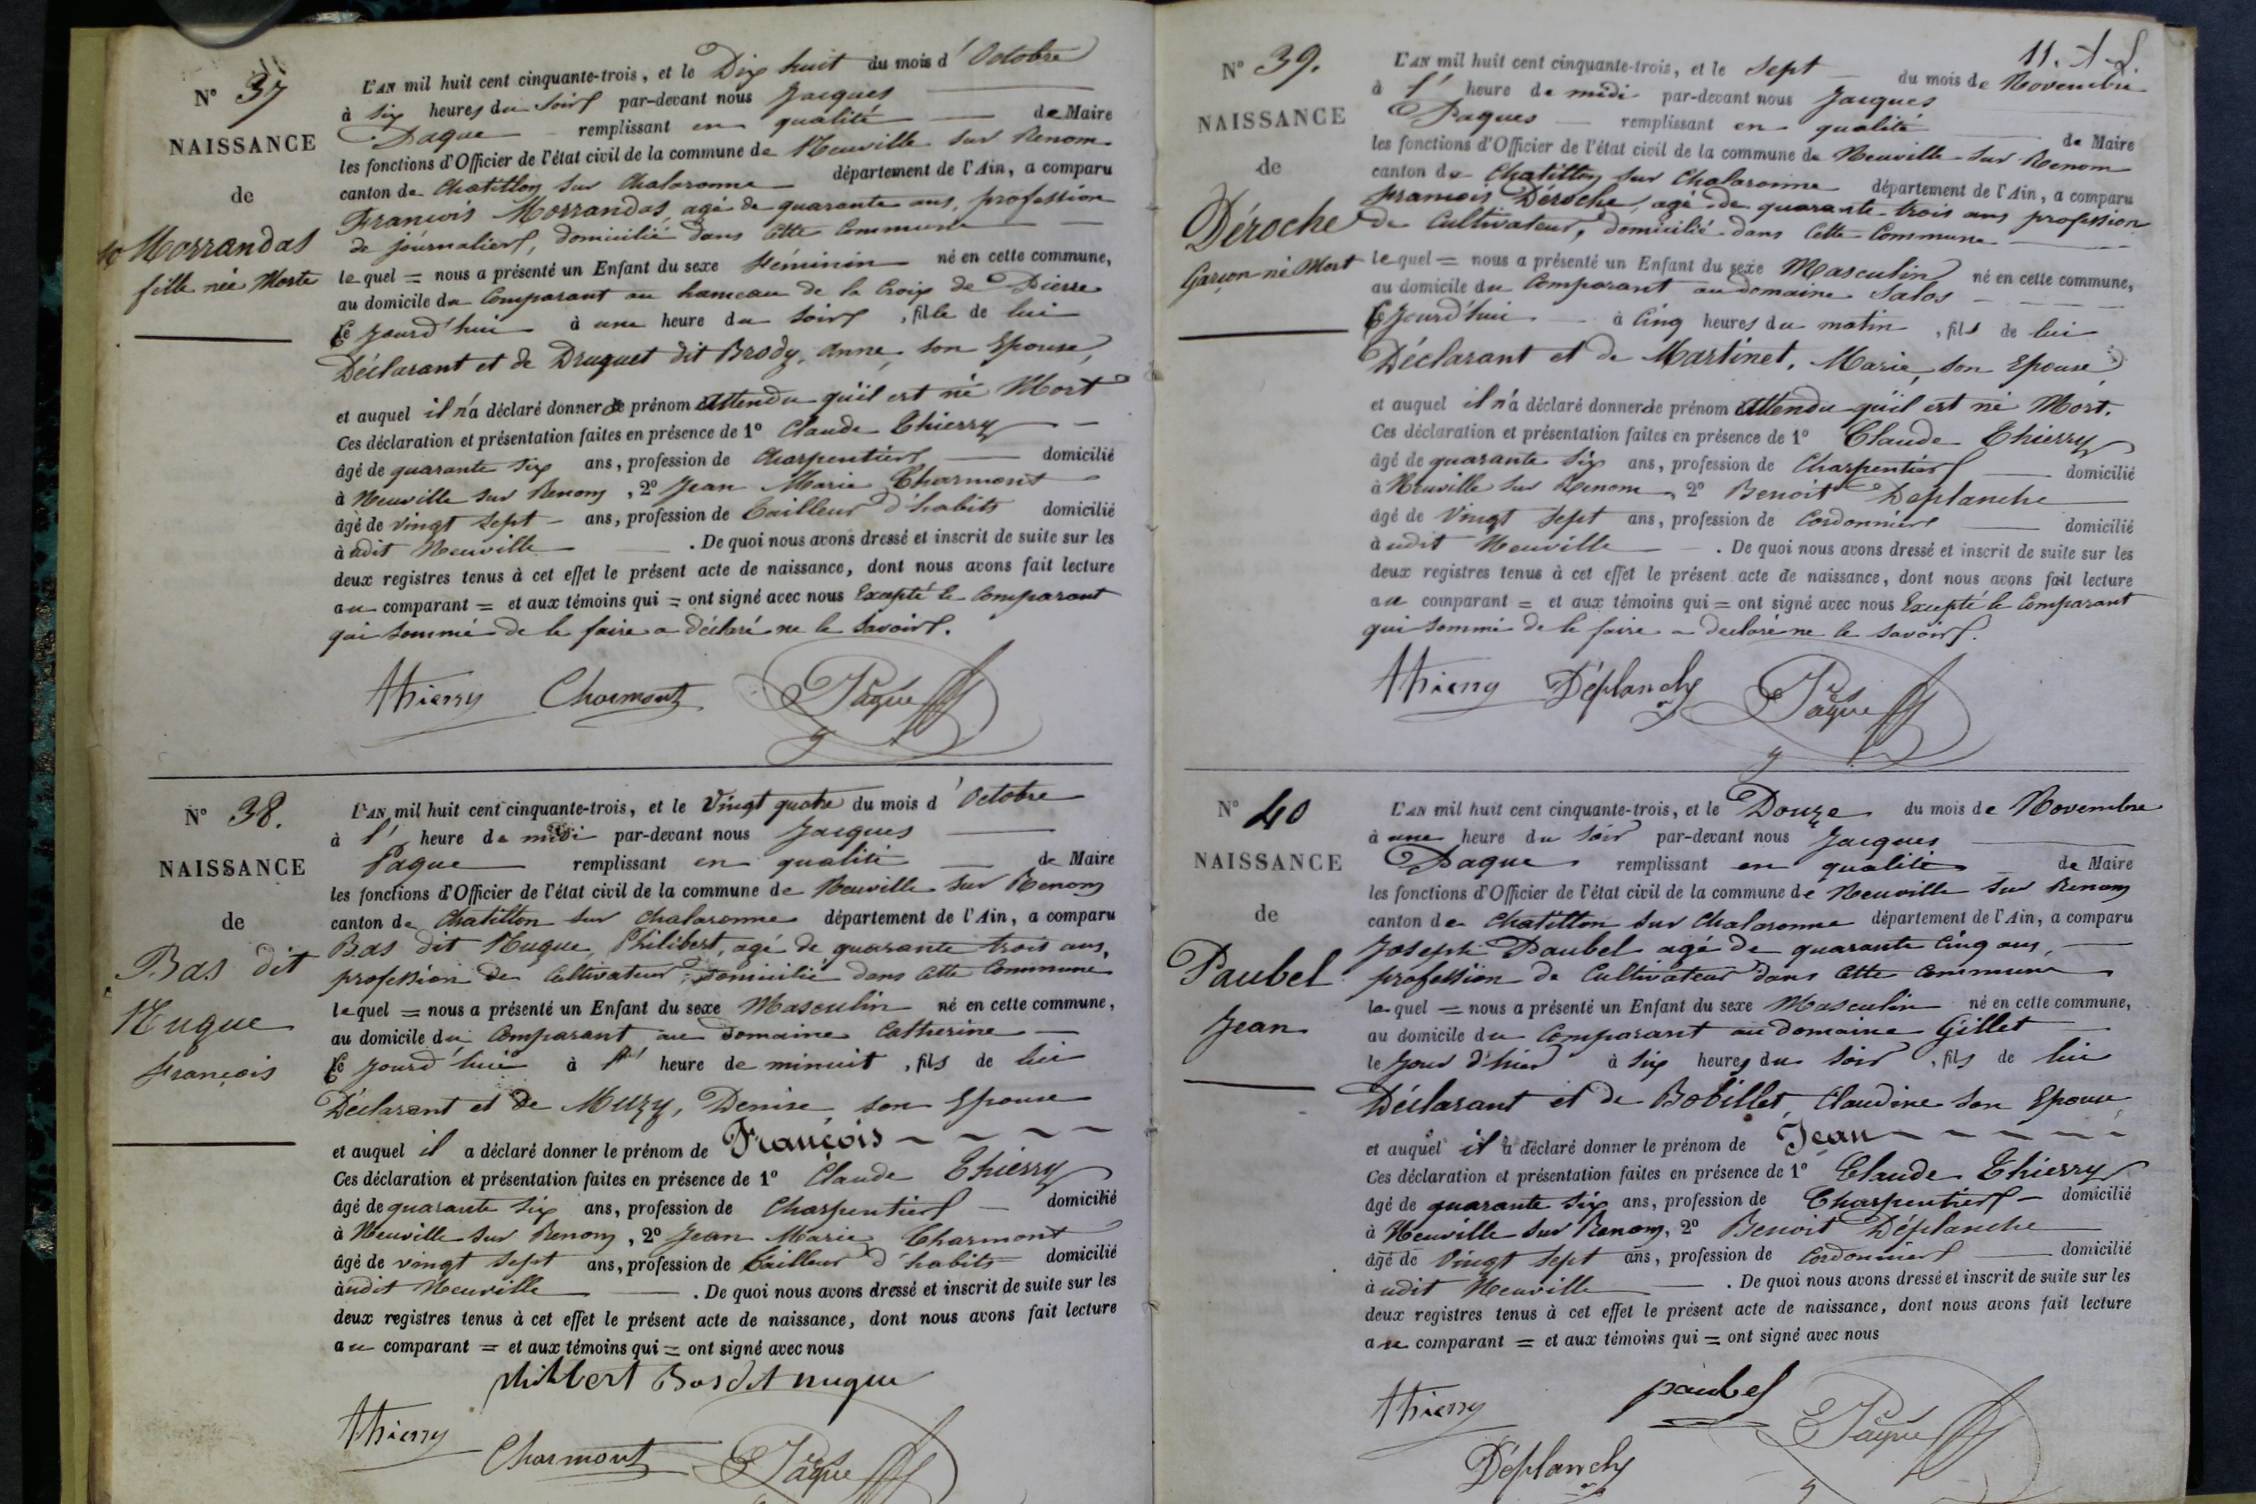 N° 37
NAISSANCE
de
Morrandas
fille née Morte
L'AN mil huit cent cinquante-trois, et le Dix huit du mois d'Octobre
à six heures du Soir par-devant nous Jacques
Paque remplissant en qualité de Maire
les fonctions d'Officier de l'état civil de la commune de Neuville sur Renom
canton de Chatillon sur Chalaronne département de l'Ain, a comparu
François Morrandas, agé de quarante ans, profession
de journalier, domicilié dans cette Commune
lequel = nous a présenté un Enfant du sexe féminin né en cette commune,
au domicile du Comparant au hameau de la Croix de Pierre
Ce jourd'hui à une heure du soir, fille de lui
Déclarant et de Druguet dit Brody, Anne, son Epouse,
et auquel il n'a déclaré donner de prénom attendu qu'il est né Mort
Ces déclaration et présentation faites en présence de 1° Claude Thierry
âgé de quarante six ans, profession de Charpentier domicilié
à Neuville sur Renom, 2° Jean Marie Charmont
âgé de vingt sept ans, profession de Tailleur d'habits domicilié
à udit Neuville . De quoi nous avons dressé et inscrit de suite sur les
deux registres tenus à cet effet le présent acte de naissance, dont nous avons fait lecture
au comparant = et aux témoins qui = ont signé avec nous Excepté le Comparant
qui sommé de le faire a déclaré ne le savoir.
Thierry Charmont Paque
N° 38.
NAISSANCE
de
Bas dit
Nugue
François
L'AN mil huit cent cinquante-trois, et le Vingt quatre du mois d'Octobre
à l'heure de midi par-devant nous Jacques
Paque remplissant en qualité de Maire
les fonctions d'Officier de l'état civil de la commune de Neuville sur Renom
canton de Chatillon sur Chalaronne département de l'Ain, a comparu
Bas dit Nugue, Philibert, agé de quarante trois ans,
profession de Cultivateur, domicilié dans cette Commune
lequel = nous a présenté un Enfant du sexe Masculin né en cette commune,
au domicile du Comparant au Domaine Catherine
Ce jourd'hui à l'heure de minuit, fils de lui
Déclarant et de Muzy, Denise, son Epouse
et auquel il a déclaré donner le prénom de François
Ces déclaration et présentation faites en présence de 1° Claude Thierry
âgé de quarante six ans, profession de Charpentier domicilié
à Neuville sur Renom, 2° Jean Marie Charmont
âgé de vingt sept ans, profession de Tailleur d'habits domicilié
à udit Neuville . De quoi nous avons dressé et inscrit de suite sur les
deux registres tenus à cet effet le présent acte de naissance, dont nous avons fait lecture
au comparant = et aux témoins qui = ont signé avec nous
philibert Basdit nugue
Thierry
Charmont Paque
11. A L.
N° 39.
NAISSANCE
de
Déroche
Garçon né Mort
L'AN mil huit cent cinquante-trois, et le Sept du mois de Novembre
à l'heure de midi par-devant nous Jacques
Paques remplissant en qualité de Maire
les fonctions d'Officier de l'état civil de la commune de Neuville sur Renom
canton de Chatillon sur Chalaronne département de l'Ain, a comparu
François Déroche, agé de quarante trois ans profession
de Cultivateur, domicilié dans cette Commune
lequel = nous a présenté un Enfant du sexe Masculin né en cette commune,
au domicile du Comparant au domaine Salos
Ce jourd'hui à cinq heures du matin, fils de lui
Déclarant et de Martinet, Marie, son Epouse,
et auquel il n'a déclaré donner de prénom attendu qu'il est né Mort.
Ces déclaration et présentation faites en présence de 1° Claude Thierry
âgé de quarante six ans, profession de Charpentier domicilié
à Neuville sur Renom, 2° Benoit Déplanche
âgé de Vingt sept ans, profession de Cordonnier domicilié
à udit Neuville . De quoi nous avons dressé et inscrit de suite sur les
deux registres tenus à cet effet le présent acte de naissance, dont nous avons fait lecture
au comparant = et aux témoins qui = ont signé avec nous Excepté le Comparant
qui sommé de le faire a déclaré ne le savoir.
Thierry Déplanche Paque
N° 40
NAISSANCE
de
Paubel
Jean
L'AN mil huit cent cinquante-trois, et le Douze du mois de Novembre
à une heure du soir par-devant nous Jacques
Paque remplissant en qualité de Maire
les fonctions d'Officier de l'état civil de la commune de Neuville sur Renom
canton de Chatillon sur Chalaronne département de l'Ain, a comparu
Joseph Paubel agé de quarante cinq ans,
profession de Cultivateur dans cette commune
lequel = nous a présenté un Enfant du sexe Masculin né en cette commune,
au domicile du Comparant au domaine Gillet
le jour d'hier à six heures du soir, fils de lui
Déclarant et de Bobillet, Claudine son Epouse
et auquel il a déclaré donner le prénom de Jean
Ces déclaration et présentation faites en présence de 1° Claude Thierry
âgé de quarante six ans, profession de Charpentier domicilié
à Neuville sur Renom, 2° Benoit Déplanche
âgé de Vingt sept ans, profession de Cordonnier domicilié
à udit Neuville . De quoi nous avons dressé et inscrit de suite sur les
deux registres tenus à cet effet le présent acte de naissance, dont nous avons fait lecture
au comparant = et aux témoins qui = ont signé avec nous
Thierry paubel Paque
Déplanche